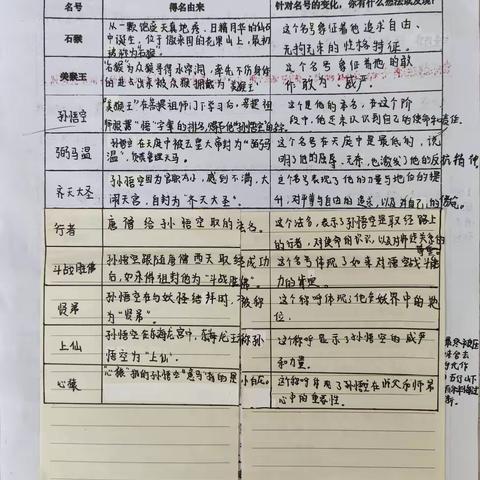 名号 得名由来 针对名号的变化，你有什么想法或发现?
石猴
从一颗饱受天真地秀，日精月华的仙石
中诞生，位于傲来国的花果山上，最初
被称为石猴。
这个名号象征着他追求自由、
无拘无束的性格特征。
美猴王
"石猴"为众猴寻得水帘洞，率先不伤身体的
进去出来被众猴拥戴为"美猴王"
这个名号象征着他的
他敢为、威严。
孙悟空
"美猴王"在菩提祖师门下学习后，菩提祖
师根据"悟"字辈的排名，赐予他"孙悟空"的名字。
这个是他的本名，在这个阶
段中，他还未认识到自己的使命和责任。
弼马温
孙悟空在天庭中被玉皇大帝封为"弼马
温"，负责管理天马。
这个名号在天庭中是最低的，说
明了他的屈辱、无奈，也激发了他的反抗精神。
齐天大圣
孙悟空因为官职太小，感到不满，大
闹天宫，自封为"齐天大圣"。
这个名号表现了他的力量与地位的提
升，对平等与自由的追求，以及对自己的
行者
唐僧给孙悟空取的法名。
这个法名，表示了孙悟空是取经路上
的行者，对使命的认识，以及对师徒关系的
斗战胜佛
孙悟空跟随唐僧西天取经成功
后，如来佛祖封他为"斗战胜佛"。
这个名号体现了如来对悟空战斗能
力的肯定。
贤弟
孙悟空在与妖怪结拜时，被称
为"贤弟"。
这个称呼体现了他在妖界中的地
位。
上仙
孙悟空在东海龙宫中，东海龙王称孙
悟空为"上仙"。
这个称呼显示了孙悟空的威严
和力量。
心猿
"心猿"指的孙悟空"意马"指的是小白龙。
这称呼体现了孙悟空在唐僧和师弟
心中的重要性。